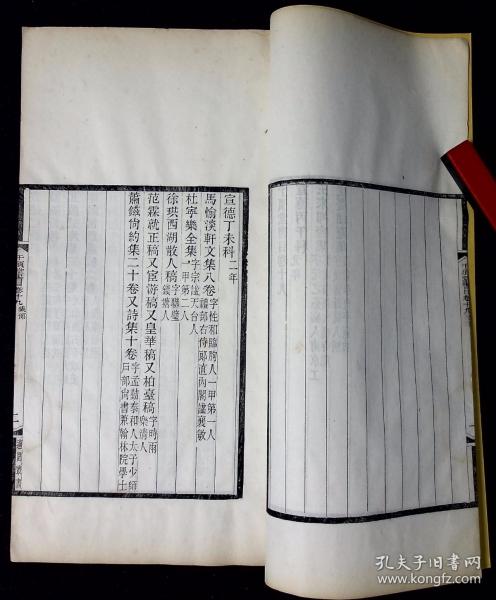 宣德丁未科二年
馬愉淡軒文集八卷字性和臨朐人一甲第一人
禮部右侍郎直內閣諡襄敏
杜寧樂全集字宗諡天台人
一甲第二人
徐珙西湖散人稿
錢塘人
范霖就正稿又宦游稿又皇華稿又柏臺稿字時雨
樂清人
蕭鎡尚約集二十卷又詩集十卷字孟勤泰和人太子少師
戶部尚書兼翰林院學士
千頃堂書目卷十九集部
孔夫子旧书网
www.kongfz.com